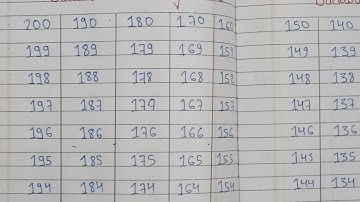 200 190 180 170 160 150 140
199 189 179 169 159 149 139
198 188 178 168 158 148 138
197 187 179 167 157 147 137
196 186 176 166 156 146 136
195 185 175 165 155 145 135
194 184 174 164 154 144 134